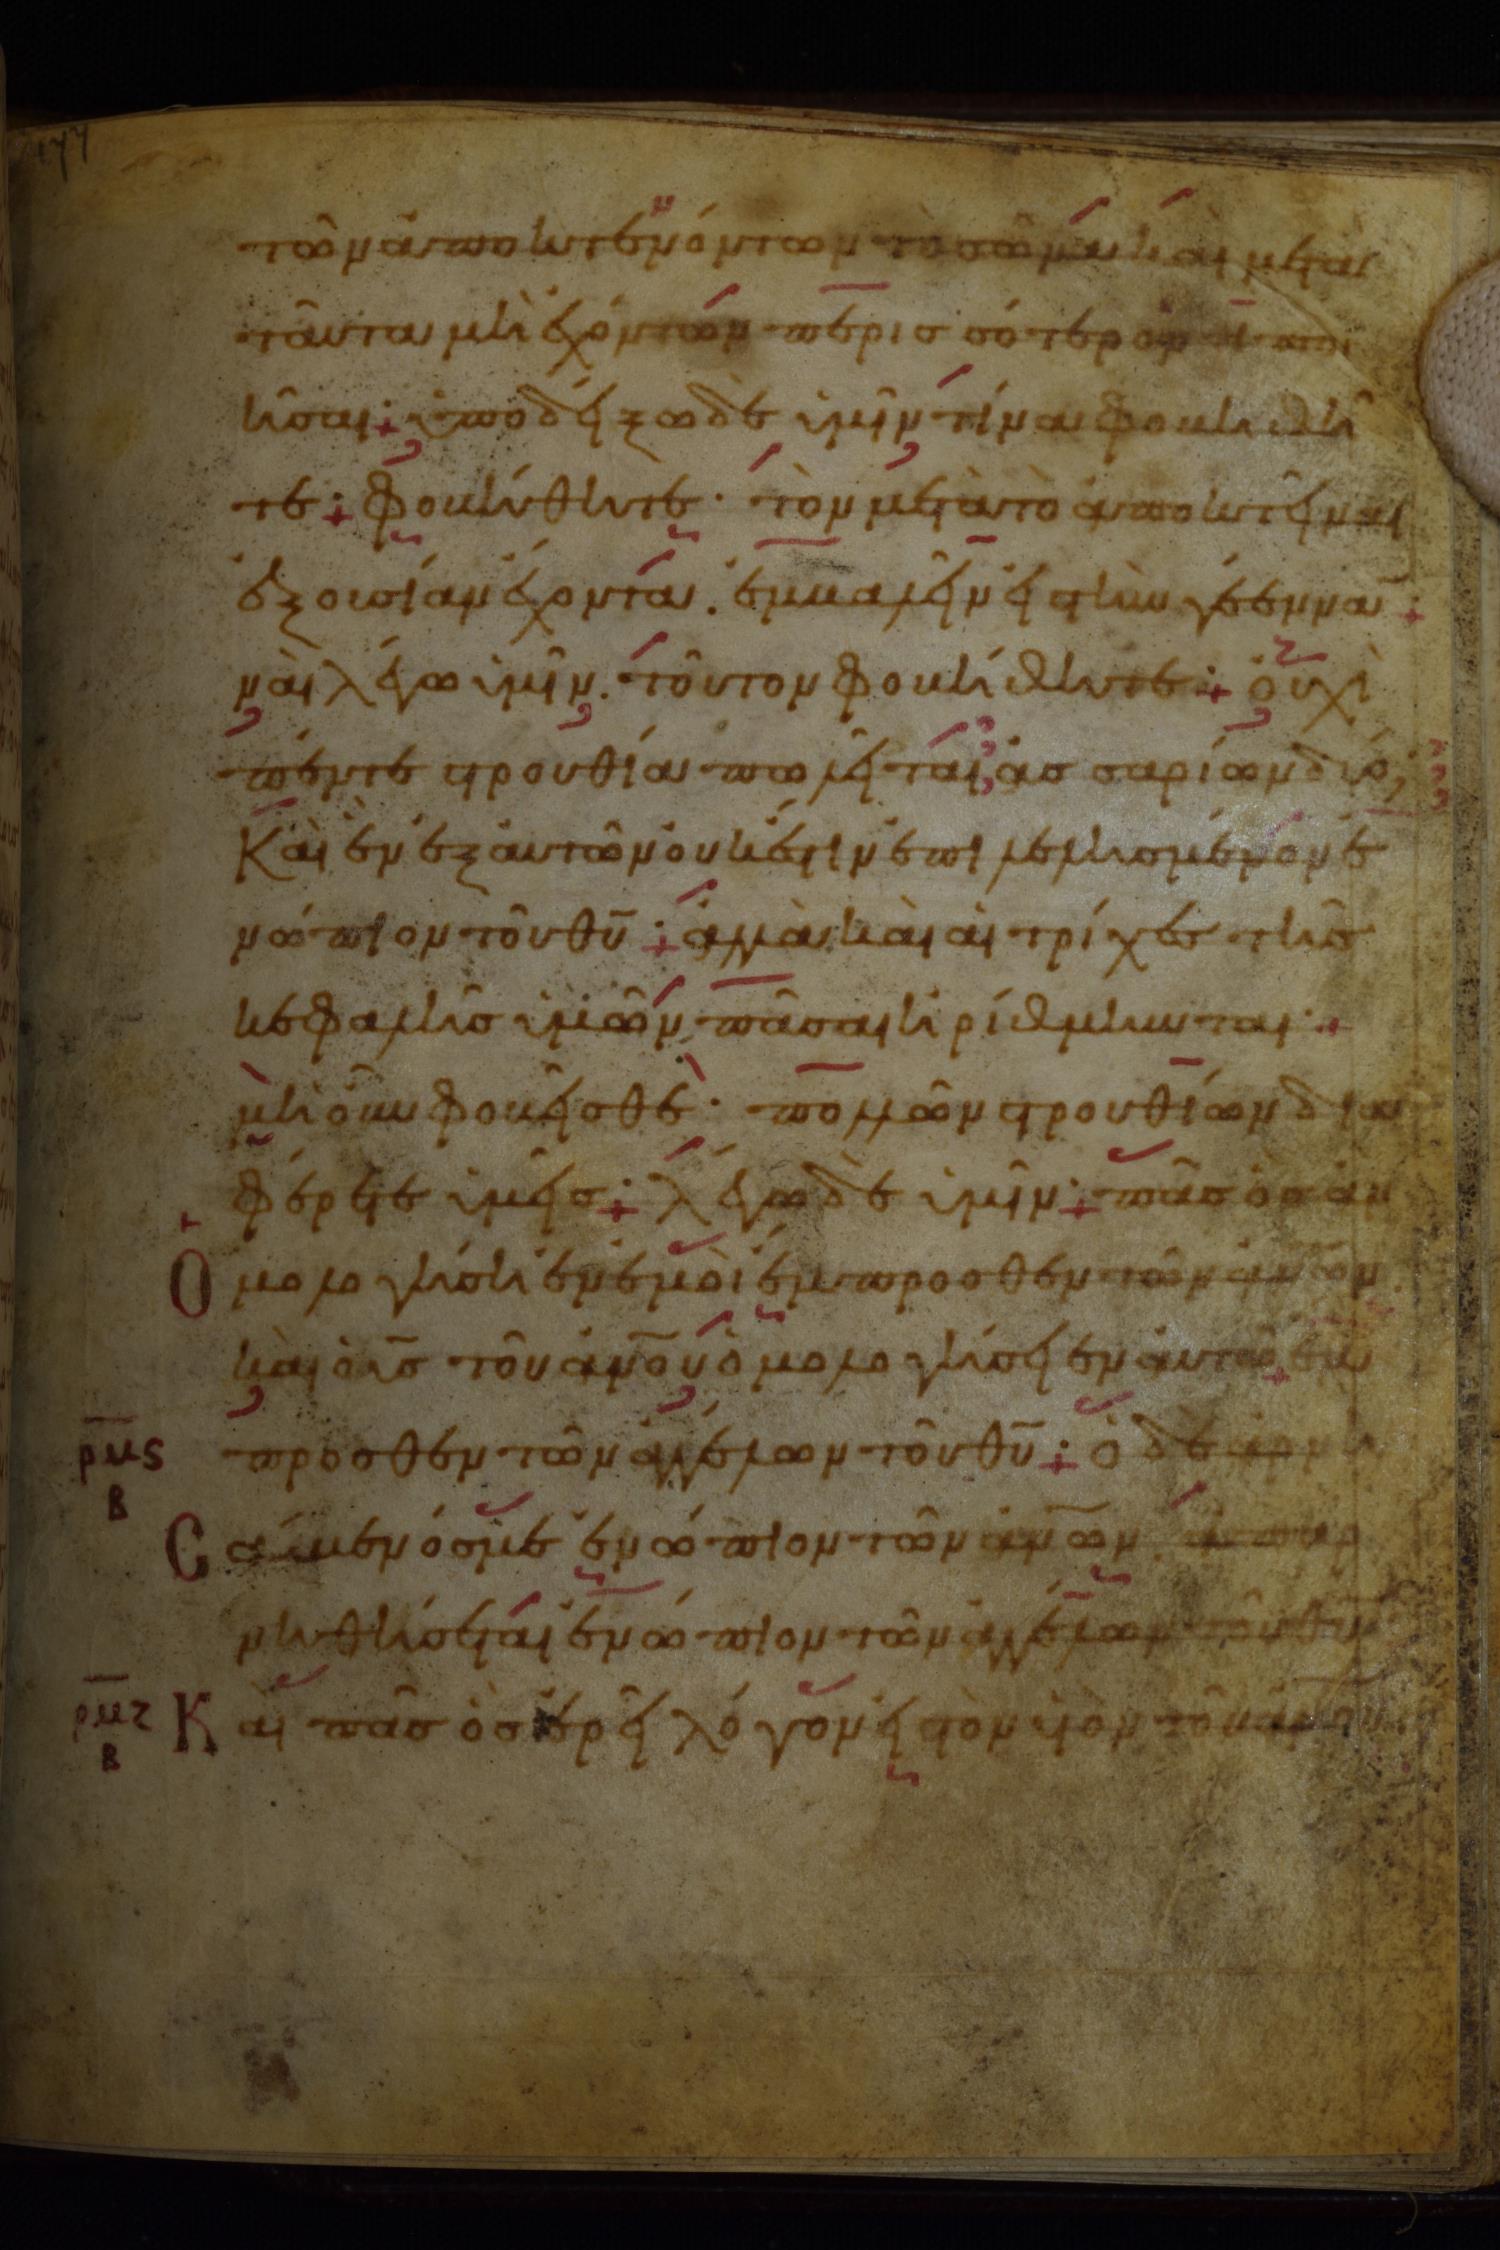 177
τῶν ἀποκτενόντων τὸ σῶμα καὶ μετὰ
ταῦτα μὴ ἐχόντων περισσότερον τι ποι
ῆσαι : ὑποδείξω δὲ ὑμῖν τίνα φοβηθῆ
τε : φοβήθητε · τὸν μετὰ τὸ ἀποκτεῖναι
ἐξουσίαν ἔχοντα . ἐμβαλεῖν εἰς τὴν γέενναν :
ναὶ λέγω ὑμῖν . τοῦτον φοβήθητε : οὐχὶ
πέντε στρουθία πωλεῖται ἀσσαρίων δύο ;
Καὶ ἓν ἐξ αὐτῶν οὐκ ἔστιν ἐπιλελησμένον ἐ
νώπιον τοῦ θυ̅ : ἀλλὰ καὶ αἱ τρίχες τῆς
κεφαλῆς ὑμῶν πᾶσαι ἠρίθμηνται ·
μὴ οὖν φοβεῖσθε · πολλῶν στρουθίων δια
φέρετε ὑμεῖς : λέγω δὲ ὑμῖν : πᾶς ὃς ἂν
Ὁ μολογήσῃ ἐν ἐμοὶ ἔμπροσθεν τῶν ἀν̅ων
καὶ ὁ υἱ̅ς τοῦ ἀν̅ου ὁμολογήσει ἐν αὐτῷ ἔμ
ρμς προσθεν τῶν ἀγγέλων τοῦ θυ̅ : ὁ δὲ ἀρνη
β
С άμενός με ἐνώπιον τῶν ἀν̅ων ἀπαρ
νηθήσεται ἐνώπιον τῶν ἀγγέλων τοῦ θυ̅
ρμζ Κ αὶ πᾶς ὃς ἐρεῖ λόγον εἰς τὸν υἱὸν τοῦ ἀν̅ου
β